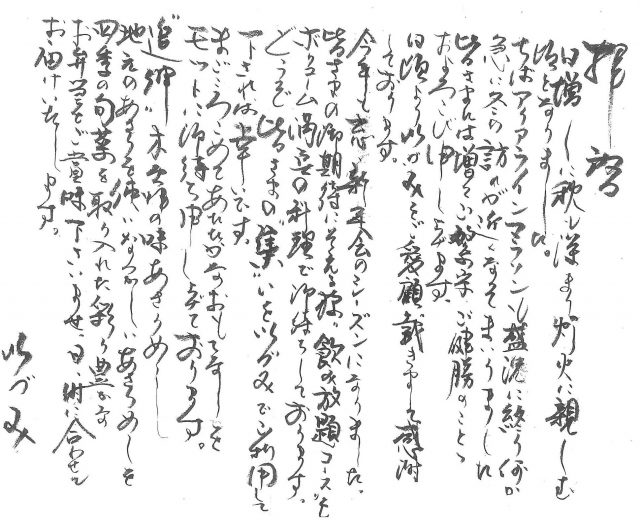 拝啓
日増しに秋も深まり灯火に親しむ
頃となりました。
ちはアクアラインマラソンも盛況に終り何か
急に冬の訪れが近くなってまいりました
皆さまには増々ご繁栄ご健勝のことゝ
およろこび申し上げます。
日頃よりいづみをご愛顧戴きまして感謝
しております。
今年も忘・新年会のシーズンになりました。
皆さまの御期待にそえる様、飲み放題コースも
ボリューム満点の料理で御待ちしております。
どうぞ皆さまの"集い"をいづみでご利用して
下されば幸いです。
まごころこめてあたたかなおもてなしを
モットーに御待ち申し上げております。
追伸 木更津の味あさりめし
地元のあさりを使いなつかしいあさりめしを
四季の旬菜を取り入れた彩り豊かな
お弁当をご賞味下さいませ。日時に合わせて
お届けいたします。
いづみ